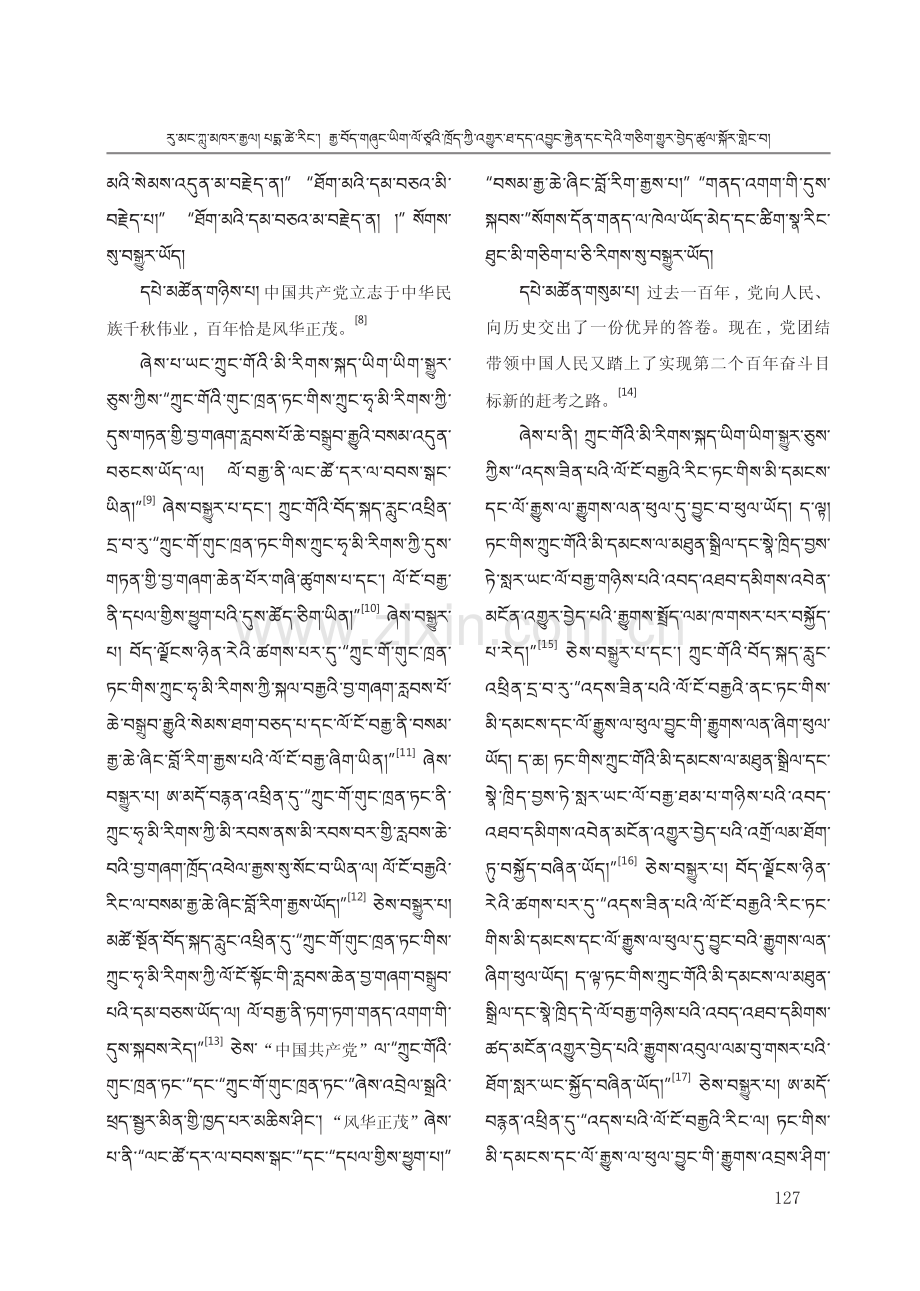 རུ་མང་ཀླུ་མཁར་རྒྱལ། པདྨ་ཚེ་རིང་། རྒྱ་བོད་གཞུང་ཡིག་ལོ་ཙཱའི་ཁྲོད་ཀྱི་འགྱུར་ཐ་དད་འབྱུང་རྐྱེན་དང་དེའི་གཅིག་གྱུར་བྱེད་ཚུལ་སྐོར་གླེང་བ།
མའི་སེམས་འདུན་མ་བརྗེད་ན།” “ཐོག་མའི་དམ་བཅའ་མི་
བརྗེད་པ།” “ཐོག་མའི་དམ་བཅའ་མ་བརྗེད་ན། །” སོགས་
སུ་བསྒྱུར་ཡོད།
དཔེ་མཚོན་གཉིས་པ། 中国共产党立志于中华民
族千秋伟业，百年恰是风华正茂。[8]
ཞེས་པ་ཡང་ཀྲུང་གོའི་མི་རིགས་སྐད་ཡིག་ཡིག་སྒྱུར་
ཅུས་ཀྱིས་“ཀྲུང་གོའི་གུང་ཁྲན་ཏང་གིས་ཀྲུང་ཧྭ་མི་རིགས་ཀྱི་
དུས་གཏན་གྱི་བྱ་གཞག་རླབས་པོ་ཆེ་བསྒྲུབ་རྒྱུའི་བསམ་འདུན་
བཅངས་ཡོད་ལ། ལོ་བརྒྱ་ནི་ལང་ཚོ་དར་ལ་བབས་སྒང་
ཡིན།”[9] ཞེས་བསྒྱུར་པ་དང་། ཀྲུང་གོའི་བོད་སྐད་རླུང་འཕྲིན་
དྲ་བ་རུ་“ཀྲུང་གོ་གུང་ཁྲན་ཏང་གིས་ཀྲུང་ཧྭ་མི་རིགས་ཀྱི་དུས་
གཏན་གྱི་བྱ་གཞག་ཆེན་པོར་གཞི་ཚུགས་པ་དང་། ལོ་ངོ་བརྒྱ་
ནི་དཔལ་གྱིས་ཕྱུག་པའི་དུས་ཚོད་ཅིག་ཡིན།”[10] ཞེས་བསྒྱུར་
པ། བོད་ལྗོངས་ཉིན་རེའི་ཚགས་པར་དུ་“ཀྲུང་གོ་གུང་ཁྲན་
ཏང་གིས་ཀྲུང་ཧྭ་མི་རིགས་ཀྱི་སྐལ་བརྒྱའི་བྱ་གཞག་རླབས་པོ་
ཆེ་བསྒྲུབ་རྒྱུའི་སེམས་ཐག་བཅད་པ་དང་ལོ་ངོ་བརྒྱ་ནི་བསམ་
རྒྱ་ཆེ་ཞིང་བློ་རིག་རྒྱས་པའི་ལོ་ངོ་བརྒྱ་ཞིག་ཡིན།”[11] ཞེས་
བསྒྱུར་པ། ཨ་མདོ་བརྙན་འཕྲིན་དུ་“ཀྲུང་གོ་གུང་ཁྲན་ཏང་ནི་
ཀྲུང་ཧྭ་མི་རིགས་ཀྱི་མི་རབས་ནས་མི་རབས་བར་གྱི་རླབས་ཆེ་
བའི་བྱ་གཞག་ཁྲོད་འཕེལ་རྒྱས་སུ་སོང་བ་ཡིན་ལ། ལོ་ངོ་བརྒྱའི་
རིང་ལ་བསམ་རྒྱ་ཆེ་ཞིང་བློ་རིག་རྒྱས་ཡོད།”[12] ཅེས་བསྒྱུར་པ།
མཚོ་སྔོན་བོད་སྐད་རླུང་འཕྲིན་དུ་“ཀྲུང་གོ་གུང་ཁྲན་ཏང་གིས་
ཀྲུང་ཧྭ་མི་རིགས་ཀྱི་ལོ་ངོ་སྟོང་གི་རླབས་ཆེན་བྱ་གཞག་བསྒྲུབ་
པའི་དམ་བཅས་ཡོད་ལ། ལོ་བརྒྱ་ནི་ཏག་ཏག་གནད་འགག་གི་
དུས་སྐབས་རེད།”[13] ཅེས་ “中国共产党” ལ་“ཀྲུང་གོའི་
གུང་ཁྲན་ཏང་”དང་“ཀྲུང་གོ་གུང་ཁྲན་ཏང་”ཞེས་འབྲེལ་སྒྲའི་
ཕྲད་སྦྱར་མིན་གྱི་ཁྱད་པར་མཆིས་ཤིང་། “风华正茂” ཞེས་
པ་ནི་“ལང་ཚོ་དར་ལ་བབས་སྒང་”དང་“དཔལ་གྱིས་ཕྱུག་པ།”
“བསམ་རྒྱ་ཆེ་ཞིང་བློ་རིག་རྒྱས་པ།” “གནད་འགག་གི་དུས་
སྐབས་”སོགས་དོན་གནད་ལ་ཁེལ་ཡོད་མེད་དང་ཚིག་སྣ་རིང་
ཐུང་མི་གཅིག་པ་ཅི་རིགས་སུ་བསྒྱུར་ཡོད།
དཔེ་མཚོན་གསུམ་པ། 过去一百年，党向人民、
向历史交出了一份优异的答卷。现在，党团结
带领中国人民又踏上了实现第二个百年奋斗目
标新的赶考之路。[14]
ཞེས་པ་ནི། ཀྲུང་གོའི་མི་རིགས་སྐད་ཡིག་ཡིག་སྒྱུར་ཅུས་
ཀྱིས་“འདས་ཟིན་པའི་ལོ་ངོ་བརྒྱའི་རིང་ཏང་གིས་མི་དམངས་
དང་ལོ་རྒྱུས་ལ་རྒྱུགས་ལན་ཕུལ་དུ་བྱུང་བ་ཕུལ་ཡོད། ད་ལྟ།
ཏང་གིས་ཀྲུང་གོའི་མི་དམངས་ལ་མཐུན་སྒྲིལ་དང་སྣེ་ཁྲིད་བྱས་
ཏེ་སླར་ཡང་ལོ་བརྒྱ་གཉིས་པའི་འབད་འཐབ་དམིགས་འབེན་
མངོན་འགྱུར་བྱེད་པའི་རྒྱུགས་སྤྲོད་ལམ་ཁ་གསར་པར་བསྐྱོད་
པ་རེད།”[15] ཅེས་བསྒྱུར་པ་དང་། ཀྲུང་གོའི་བོད་སྐད་རླུང་
འཕྲིན་དྲ་བ་རུ་“འདས་ཟིན་པའི་ལོ་ངོ་བརྒྱའི་ནང་ཏང་གིས་
མི་དམངས་དང་ལོ་རྒྱུས་ལ་ཕུལ་བྱུང་གི་རྒྱུགས་ལན་ཞིག་ཕུལ་
ཡོད། ད་ཆ། ཏང་གིས་ཀྲུང་གོའི་མི་དམངས་ལ་མཐུན་སྒྲིལ་དང་
སྣེ་ཁྲིད་བྱས་ཏེ་སླར་ཡང་ལོ་བརྒྱ་ཐམ་པ་གཉིས་པའི་འབད་
འཐབ་དམིགས་འབེན་མངོན་འགྱུར་བྱེད་པའི་འགྲོ་ལམ་ཐོག་
ཏུ་བསྐྱོད་བཞིན་ཡོད།”[16] ཅེས་བསྒྱུར་པ། བོད་ལྗོངས་ཉིན་
རེའི་ཚགས་པར་དུ་“འདས་ཟིན་པའི་ལོ་ངོ་བརྒྱའི་རིང་ཏང་
གིས་མི་དམངས་དང་ལོ་རྒྱུས་ལ་ཕུལ་དུ་བྱུང་བའི་རྒྱུགས་ལན་
ཞིག་ཕུལ་ཡོད། ད་ལྟ་ཏང་གིས་ཀྲུང་གོའི་མི་དམངས་ལ་མཐུན་
སྒྲིལ་དང་སྣེ་ཁྲིད་དེ་ལོ་བརྒྱ་གཉིས་པའི་འབད་འཐབ་དམིགས་
ཚད་མངོན་འགྱུར་བྱེད་པའི་རྒྱུགས་འབུལ་ལམ་བུ་གསར་པའི་
ཐོག་སླར་ཡང་སྐྱོད་བཞིན་ཡོད།”[17] ཅེས་བསྒྱུར་པ། ཨ་མདོ་
བརྙན་འཕྲིན་དུ་“འདས་པའི་ལོ་ངོ་བརྒྱའི་རིང་ལ། ཏང་གིས་
མི་དམངས་དང་ལོ་རྒྱུས་ལ་ཕུལ་བྱུང་གི་རྒྱུགས་འབྲས་ཤིག་
127
www.zixin.com.cn